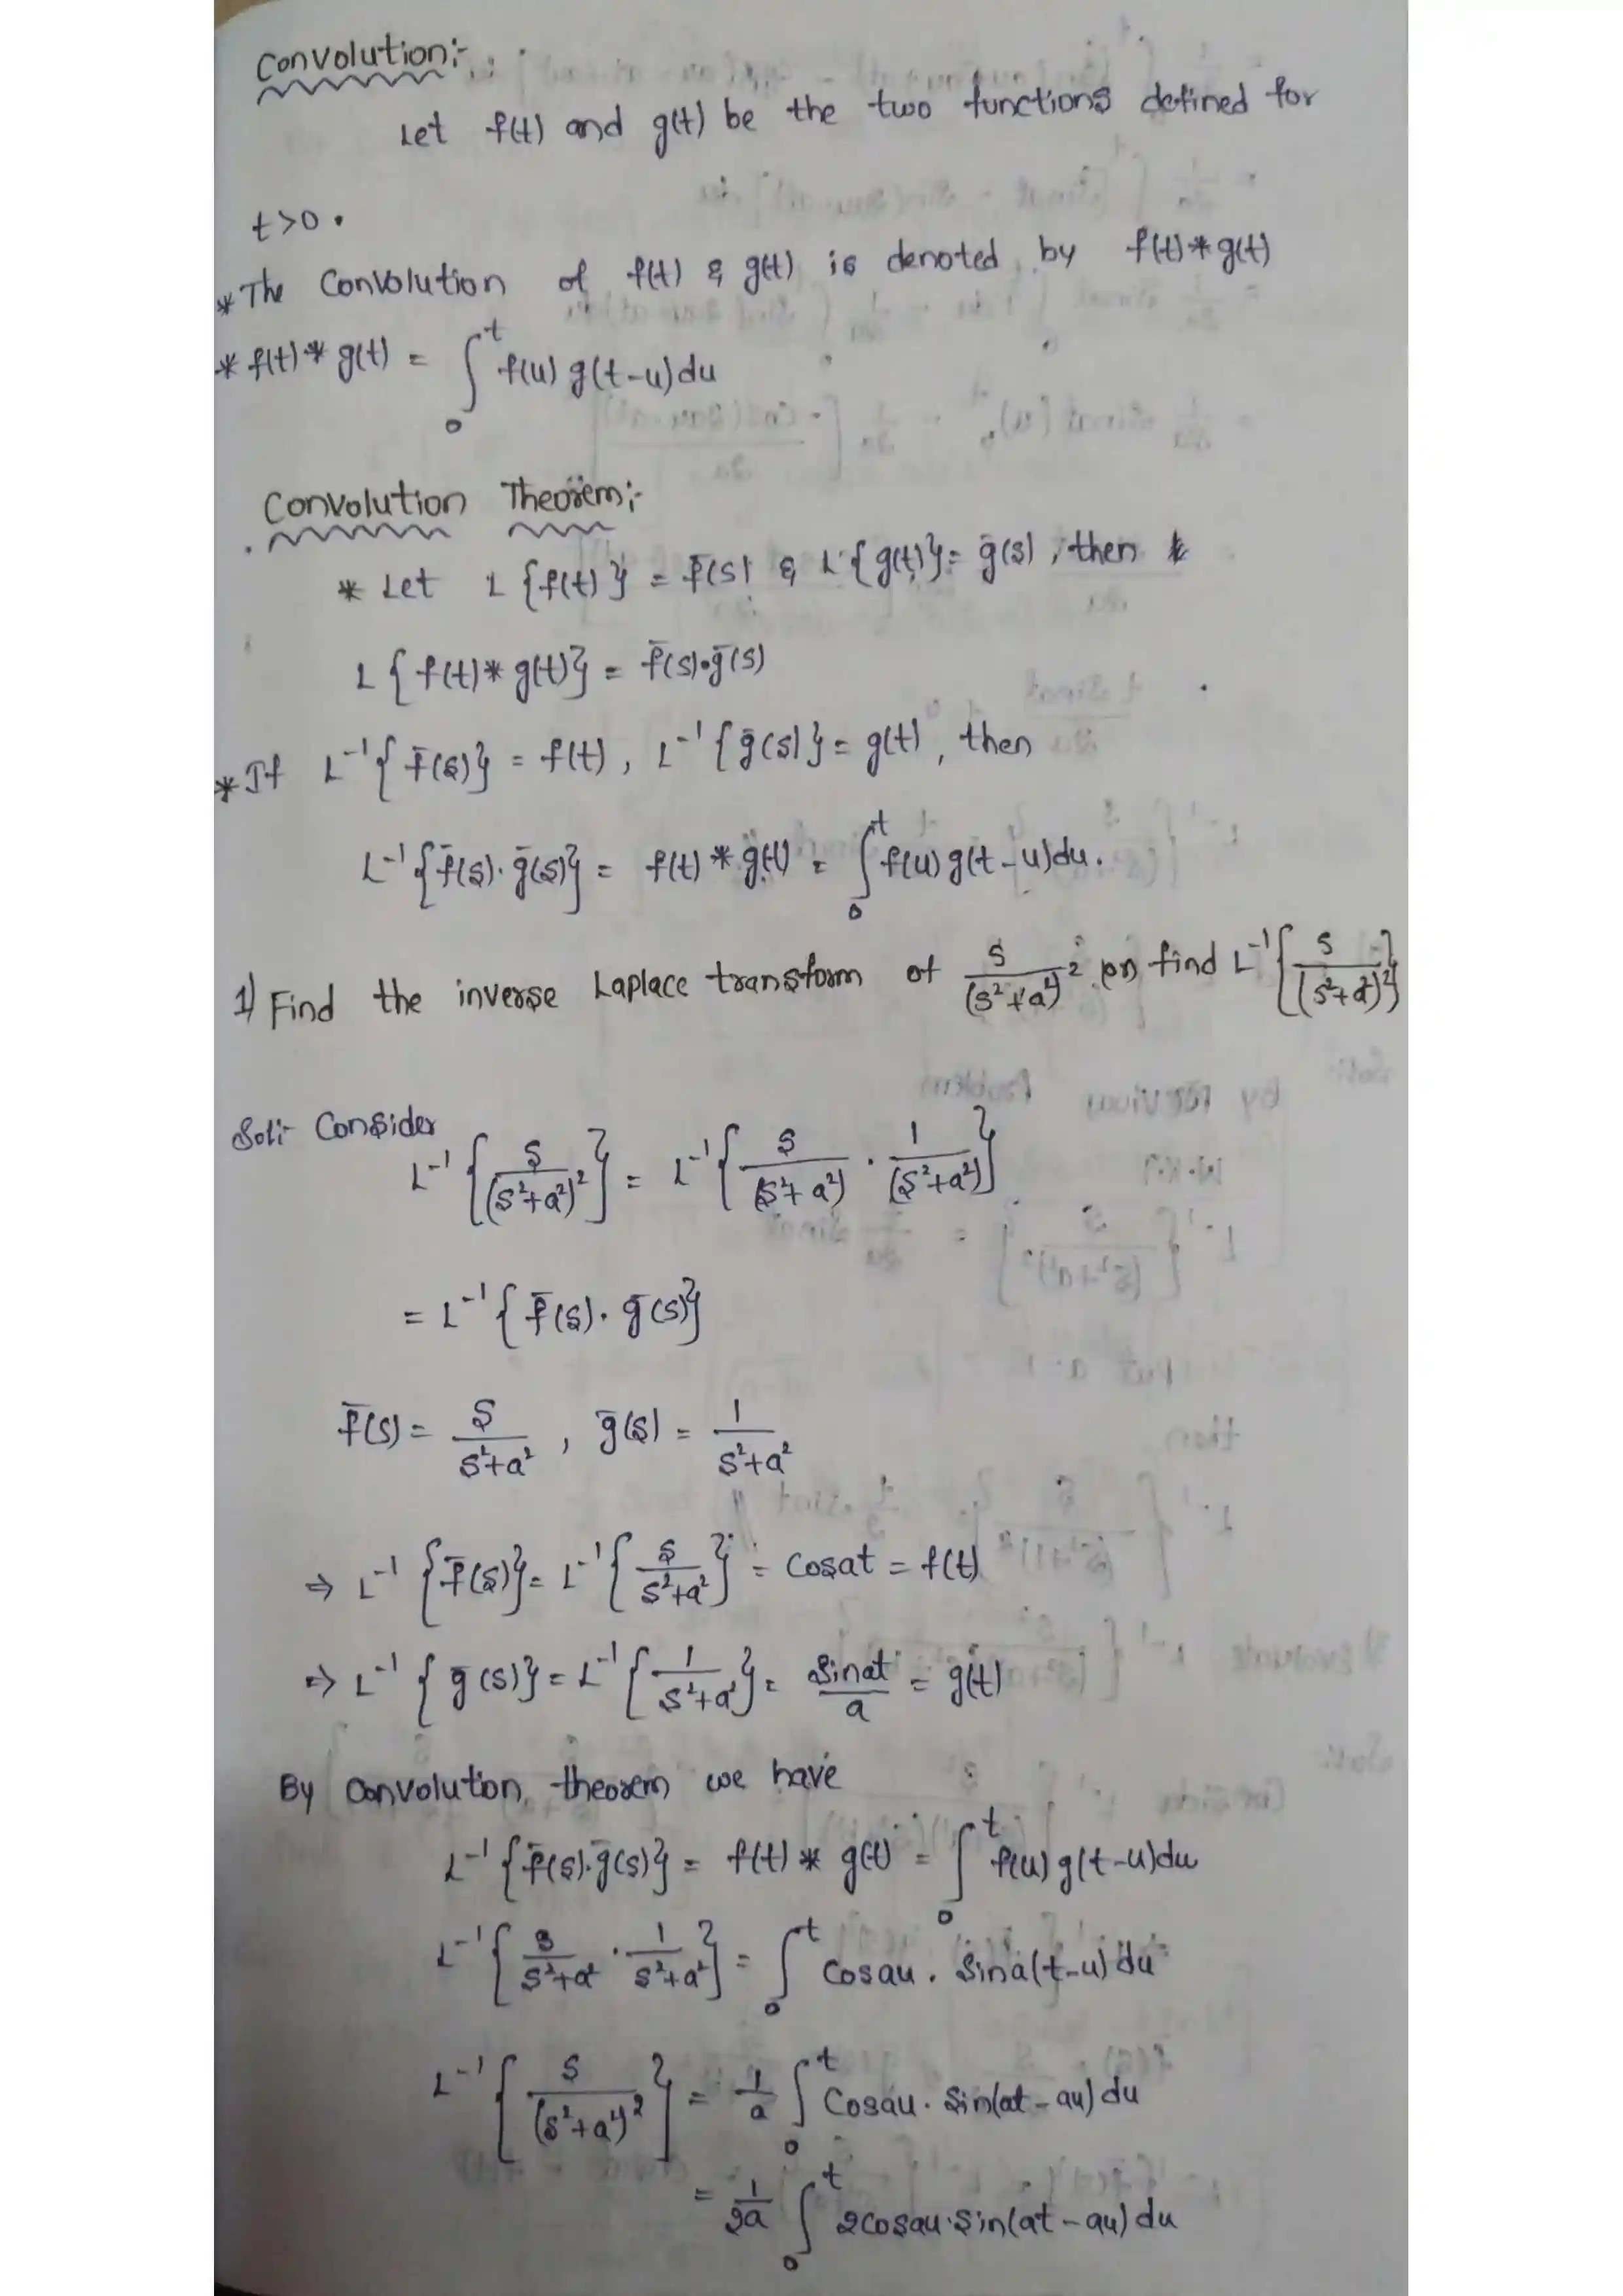 Convolution:-
Let f(t) and g(t) be the two functions defined for
t>0.
* The Convolution of f(t) & g(t) is denoted by f(t)*g(t)
* f(t)*g(t) = ∫₀ᵗ f(u) g(t-u)du
Convolution Theorem:-
* Let L{f(t)} = f̄(s) & L{g(t)} = ḡ(s), then
L{f(t)*g(t)} = f̄(s)·ḡ(s)
* If L⁻¹{f̄(s)} = f(t), L⁻¹{ḡ(s)} = g(t), then
L⁻¹{f̄(s)·ḡ(s)} = f(t)*g(t) = ∫₀ᵗ f(u) g(t-u)du.
1) Find the inverse Laplace transform of s/(s²+a²)² (or) find L⁻¹{s/(s²+a²)²}
Sol:- Consider
L⁻¹{s/(s²+a²)²} = L⁻¹{s/(s²+a²) · 1/(s²+a²)}
= L⁻¹{f̄(s)·ḡ(s)}
f̄(s) = s/s²+a² , ḡ(s) = 1/s²+a²
⇒ L⁻¹{f̄(s)} = L⁻¹{s/s²+a²} = Cosat = f(t)
⇒ L⁻¹{ḡ(s)} = L⁻¹{1/s²+a²} = Sinat/a = g(t)
By Convolution theorem we have
L⁻¹{f̄(s)·ḡ(s)} = f(t)*g(t) = ∫₀ᵗ f(u) g(t-u)du
L⁻¹{s/s²+a² · 1/s²+a²} = ∫₀ᵗ Cosau. Sina(t-u) du
L⁻¹{s/(s²+a²)²} = 1/a ∫₀ᵗ Cosau. Sin(at-au) du
= 1/2a ∫₀ᵗ 2Cosau.Sin(at-au) du